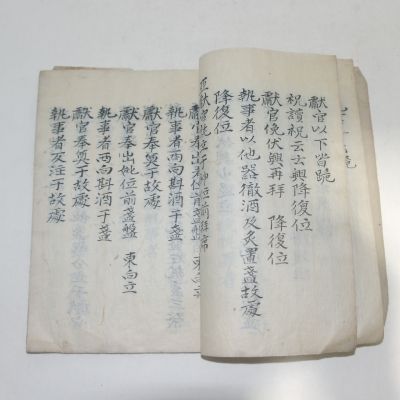 獻官以下皆跪
祝讀祝云云興降復位
獻官俛伏興再拜 降復位
執事者以他器徹酒及炙置盞故處
降復位
獻官奉出考位前盞盤 東向立
執事者西向斟酒于盞
獻官奉奠于故處
獻官奉出妣位前盞盤 東向立
執事者西向斟酒于盞
獻官奉奠于故處
執事者反注于故處